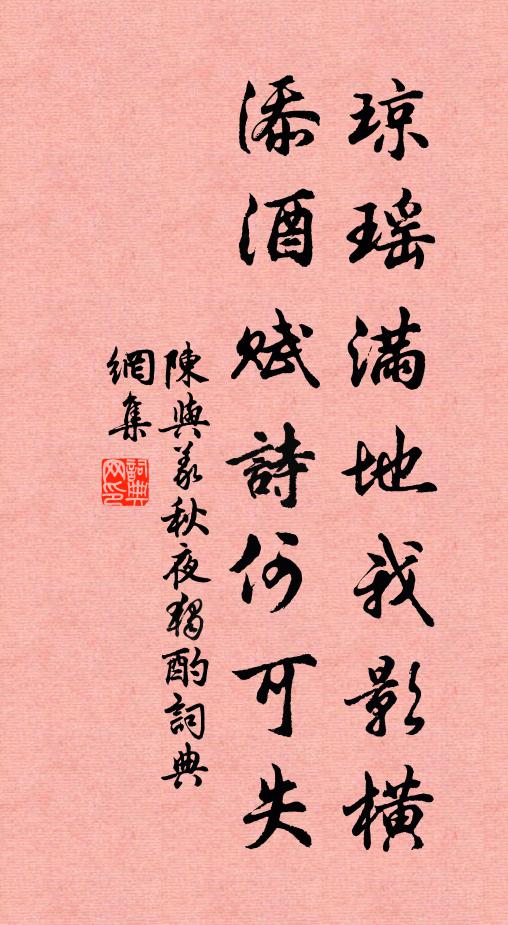 琼瑶滿地我影橫
添酒賦詩何可失
陳與義秋夜獨酌詞典
網集
詞典網印